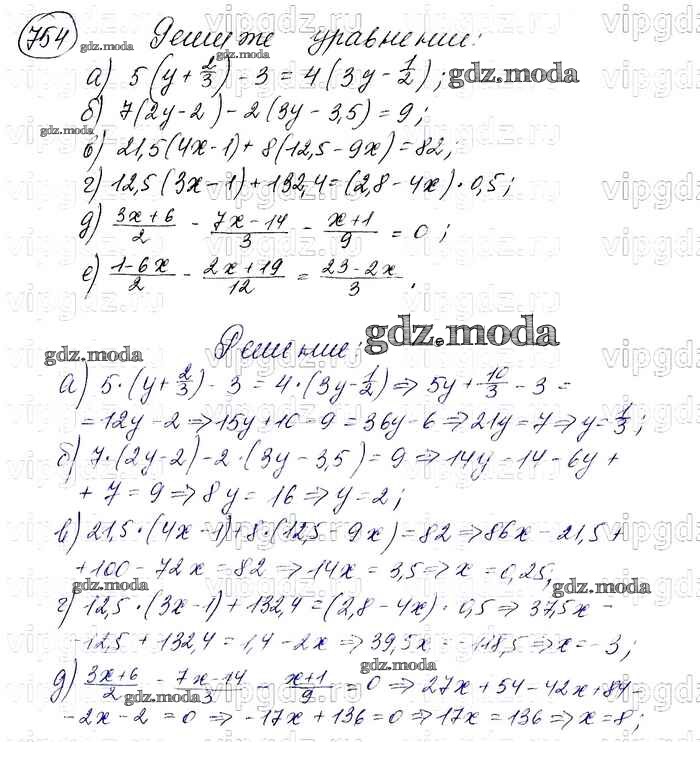 754
Решите уравнения:
gdz.moda
а) 5(y + 2/3) - 3 = 4(3y - 1/2);
gdz.moda
б) 7(2y - 2) - 2(3y - 3,5) = 9;
gdz.moda
в) 21,5(4x - 1) + 8(12,5 - 9x) = 82;
г) 12,5(3x - 1) + 132,4 = (2,8 - 4x) · 0,5;
д) (3x + 6)/2 - (7x - 14)/3 - (x + 1)/9 = 0;
е) (1 - 6x)/2 - (2x + 19)/12 = (23 - 2x)/3.
Решение:
gdz.moda
gdz.moda
а) 5·(y + 2/3) - 3 = 4·(3y - 1/2) ⇒ 5y + 10/3 - 3 =
= 12y - 2 ⇒ 15y + 10 - 9 = 36y - 6 ⇒ 21y = 7 ⇒ y = 1/3;
б) 7·(2y - 2) - 2·(3y - 3,5) = 9 ⇒ 14y = 14 - 6y +
+ 7 = 9 ⇒ 8y = 16 ⇒ y = 2;
в) 21,5·(4x - 1) + 8·(12,5 - 9x) = 82 ⇒ 86x - 21,5 +
+ 100 - 72x = 82 ⇒ 14x = 3,5 ⇒ x = 0,25,
gdz.moda
gdz.moda
г) 12,5·(3x - 1) + 132,4 = (2,8 - 4x) · 0,5 ⇒ 37,5x -
- 12,5 + 132,4 = 1,4 - 2x ⇒ 39,5x = -118,5 ⇒ x = -3;
gdz.moda
д) (3x + 6)/2 - (7x - 14)/3 - (x + 1)/9 = 0 ⇒ 27x + 54 - 42x + 84 -
- 2x - 2 = 0 ⇒ -17x + 136 = 0 ⇒ 17x = 136 ⇒ x = 8;